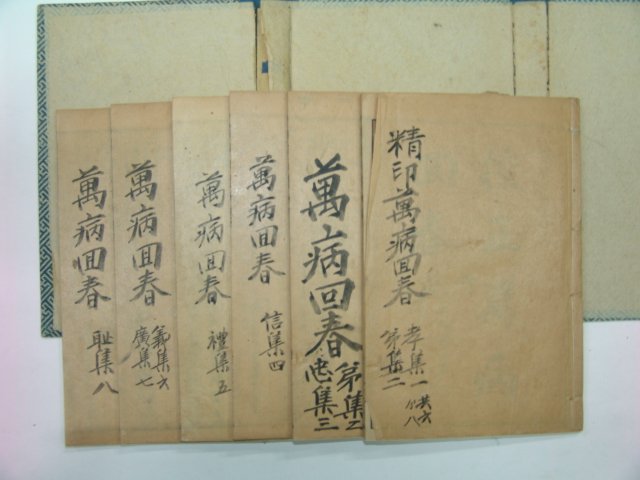 精印萬病回春
孝集一
弟集二
共六
萬病回春
弟集二
忠集三
萬病回春
信集四
萬病回春
禮集五
萬病回春
義集六
廉集七
萬病回春
恥集八